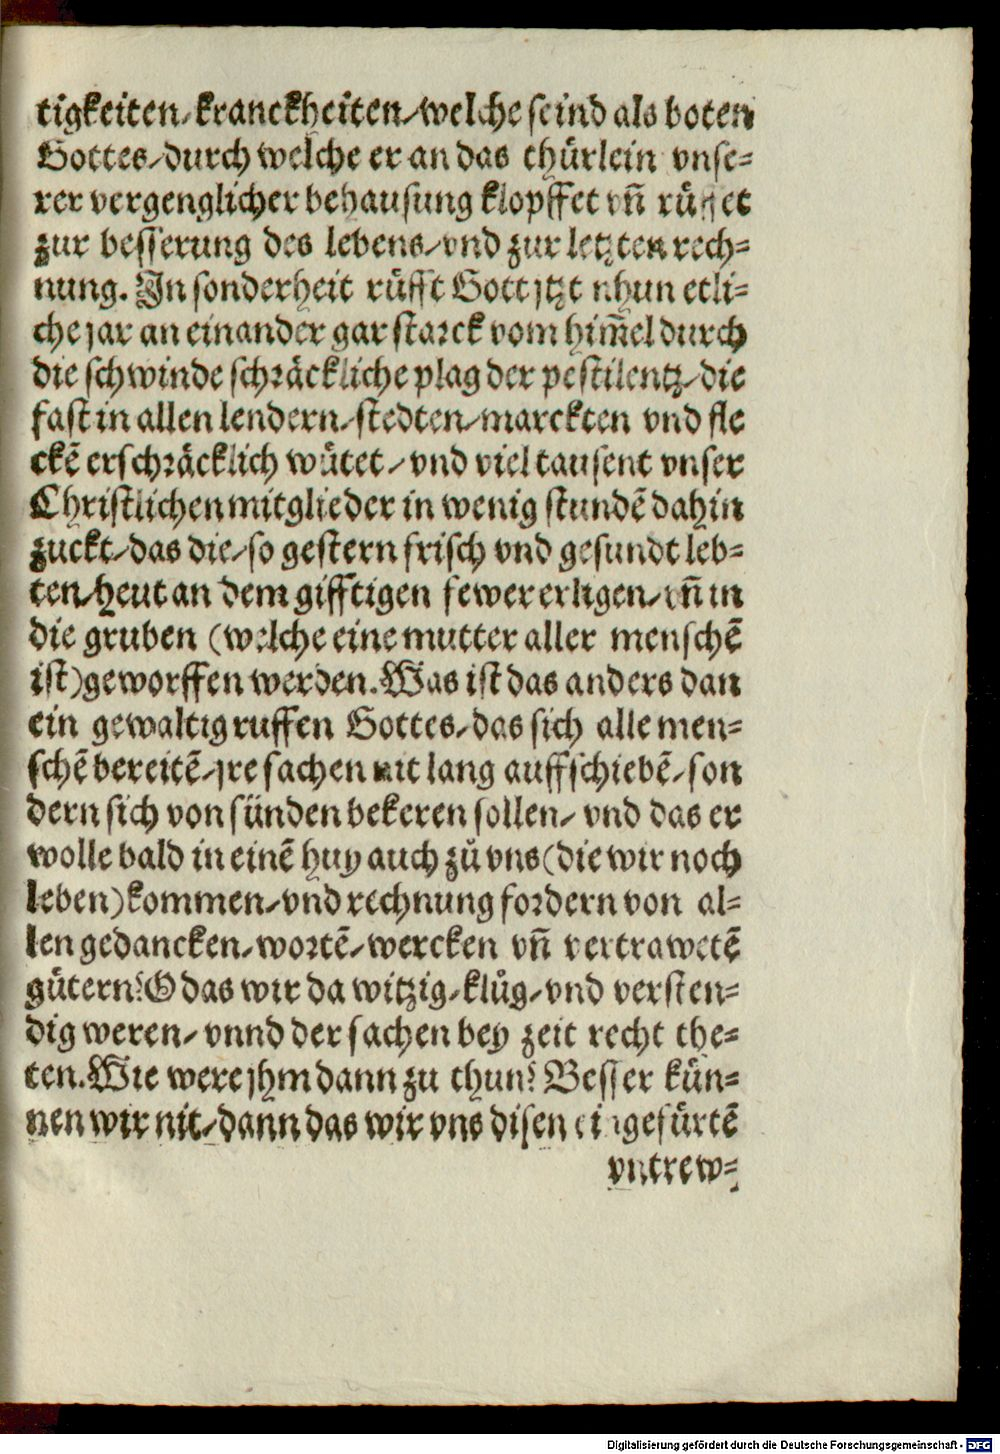 tigkeiten/ kranckheiten/ welche seind als boten
Gottes/ durch welche er an das thürlein vnse=
rer vergenglicher behausung klopffet vñ rüffet
zur besserung des lebens/ vnd zur letzten rech=
nung. In sonderheit rüfft Gott jtzt nhun etli=
che jar an einander gar starck vom him̃el durch
die schwinde schräckliche plag der pestilentz/ die
fast in allen lendern/ stedten/ marckten vnd fle
ckẽ erschräcklich wütet/ vnd viel tausent vnser
Christlichen mitglieder in wenig stundẽ dahin
zuckt/ das die/ so gestern frisch vnd gesundt leb=
ten/ heut an dem gifftigen fewer erligen/ vñ in
die gruben (welche eine mutter aller menschẽ
ist) geworffen werden. Was ist das anders dan
ein gewaltig ruffen Gottes/ das sich alle men=
schẽ bereitẽ/ jre sachen nit lang auffschiebẽ/ son
dern sich von sünden bekeren sollen/ vnd das er
wolle bald in einẽ huy auch zů vns (die wir noch
leben) kommen/ vnd rechnung fordern von al=
len gedancken/ wortẽ/ wercken vñ vertrawetẽ
gütern? O das wir da witzig/ klůg/ vnd versten=
dig weren/ vnnd der sachen bey zeit recht the=
ten. Wie were jhm dann zu thun? Besser kün=
nen wir nit/ dann das wir vns disen eingefürtẽ
vntrew=
Digitalisierung gefördert durch die Deutsche Forschungsgemeinschaft - DFG